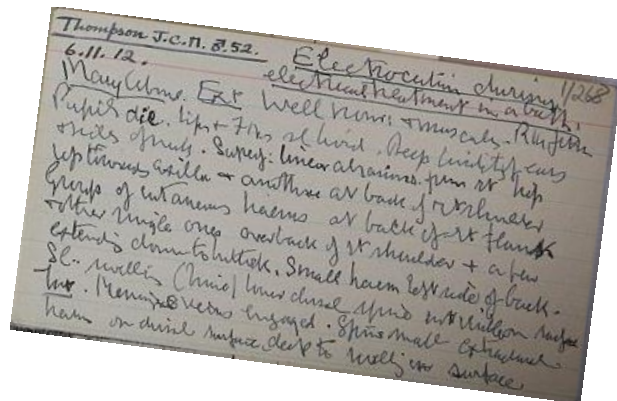 Thompson J.C.M. ♂ 52.
1/268
6.11.12. Electrocution during
electrical treatment in a bath.
Marylebone. Ext Well nour: + muscular. Rigor
Pupils dil. lips + livid. Deep lividity of ears
+ sides of neck. Superf: linear abrasions from rt hip
up towards axilla + another at back of rt shoulder
group of cutaneous haems at back of rt flank
+ other single ones over back of rt shoulder + a few
extending down to buttock. Small haem left side of back.
Sl. swelling lower dorsal spine
Int. Meninges veins engorged. Spine small extradural
haem on dorsal surface deep to swelling on surface